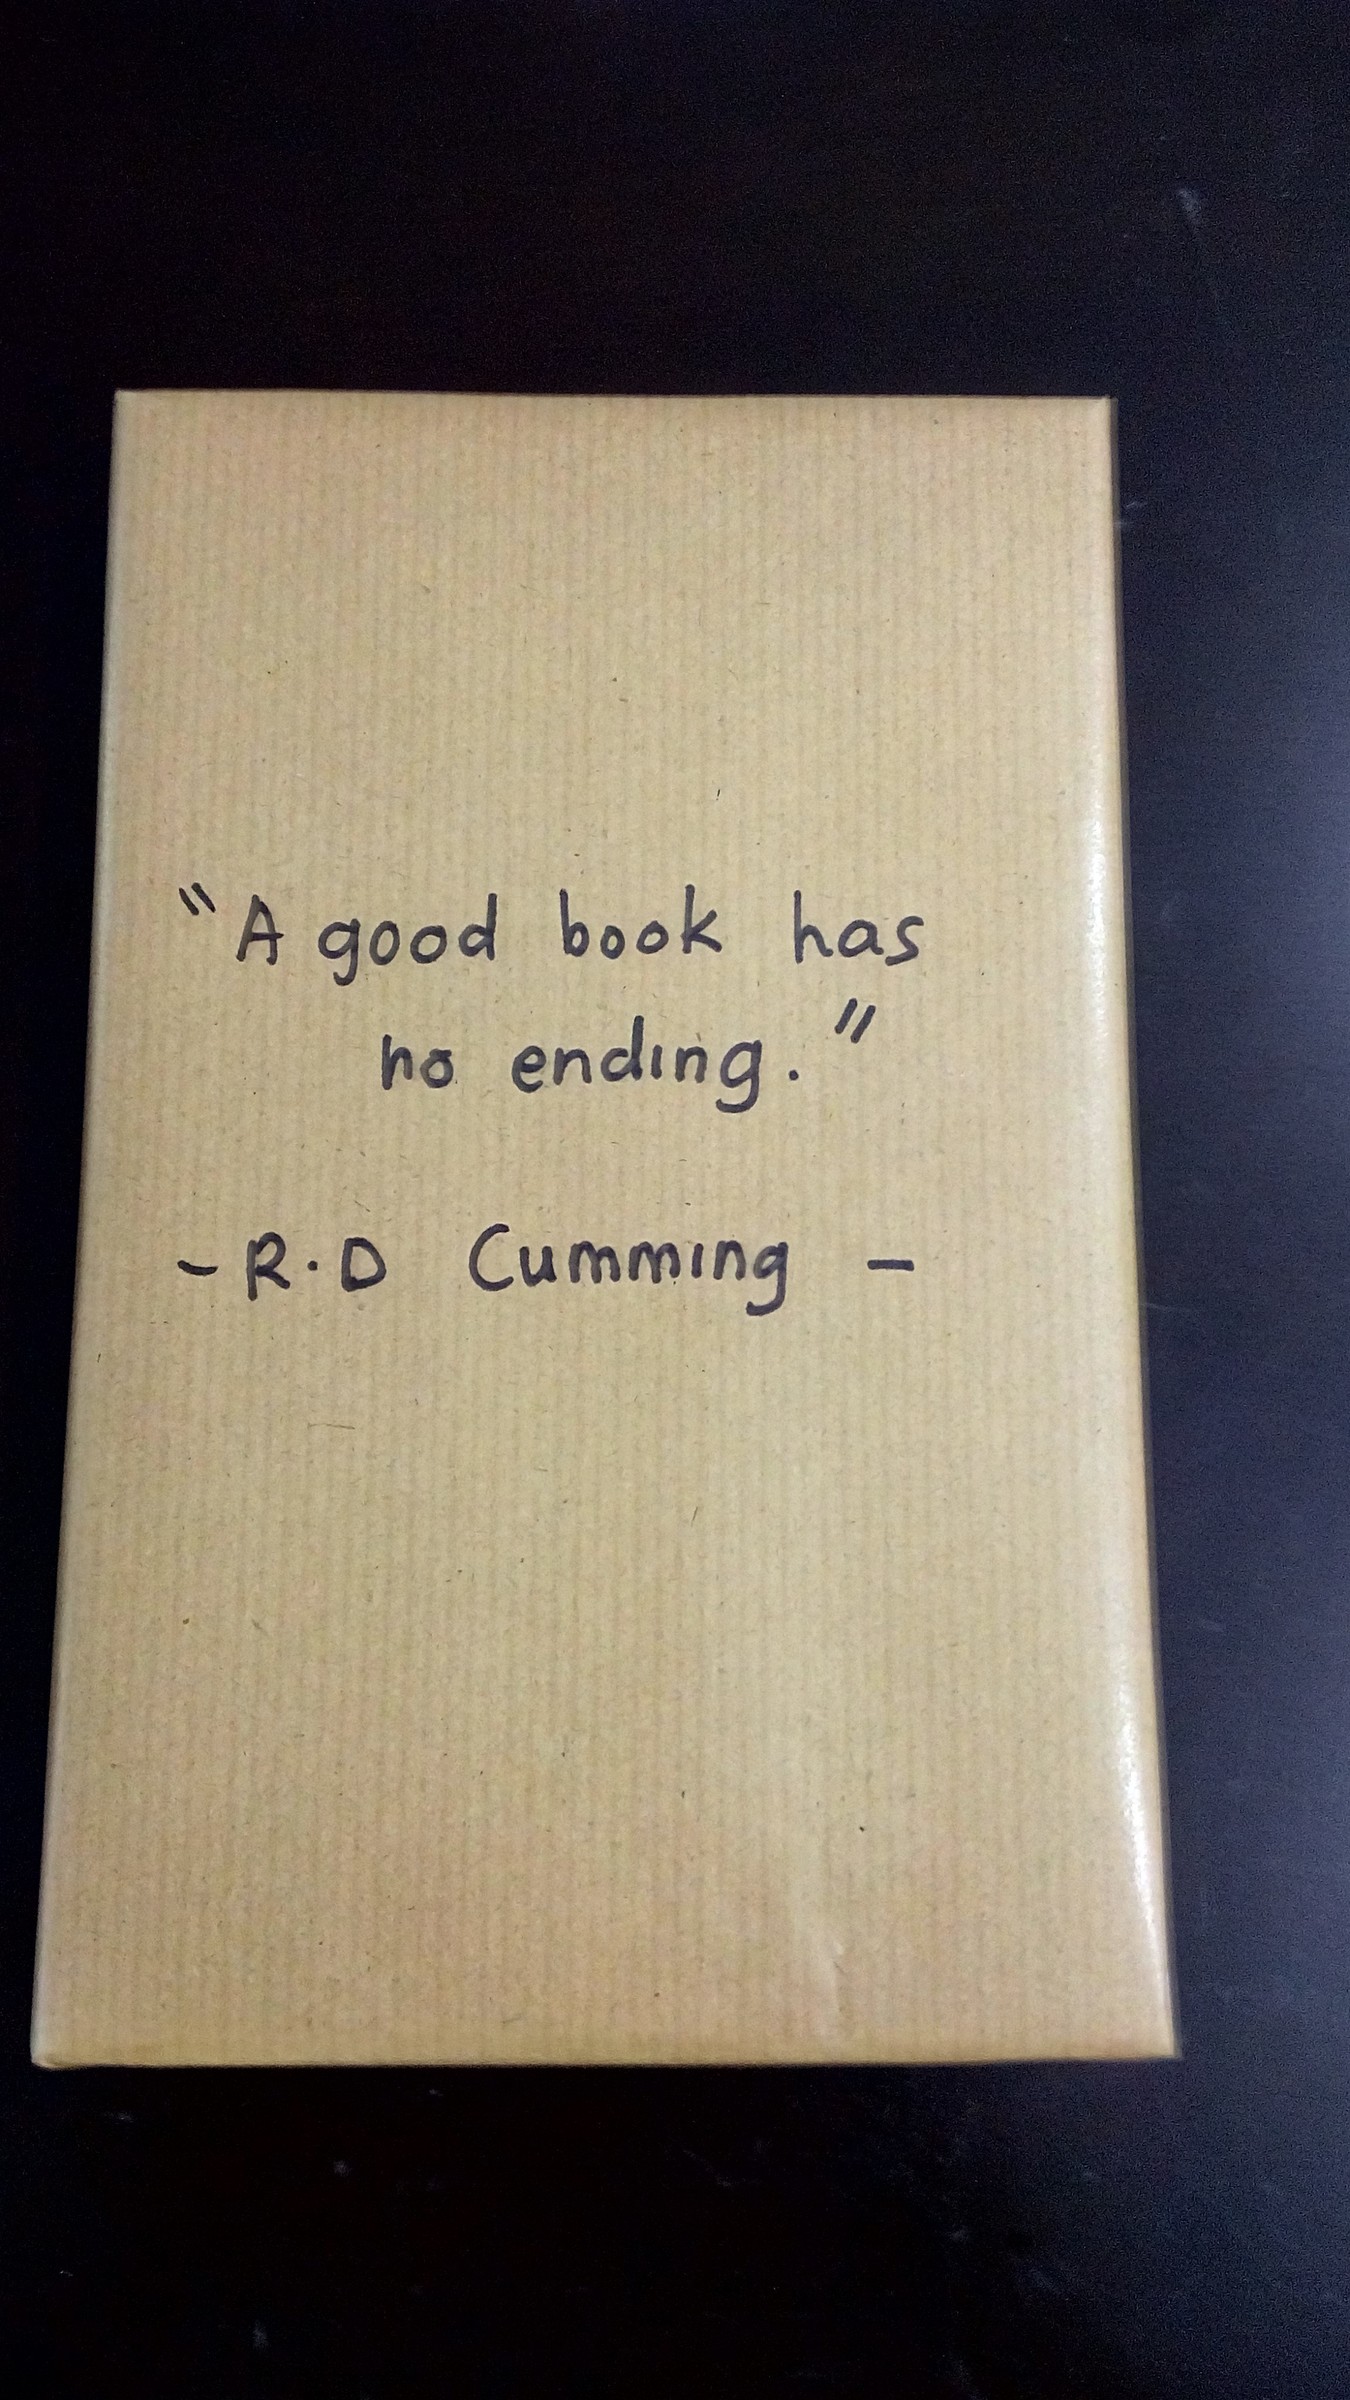 "A good book has
no ending."
- R.D Cumming -